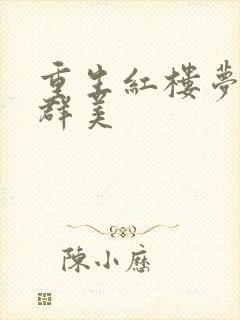 重生紅樓夢
群美
陳小歷